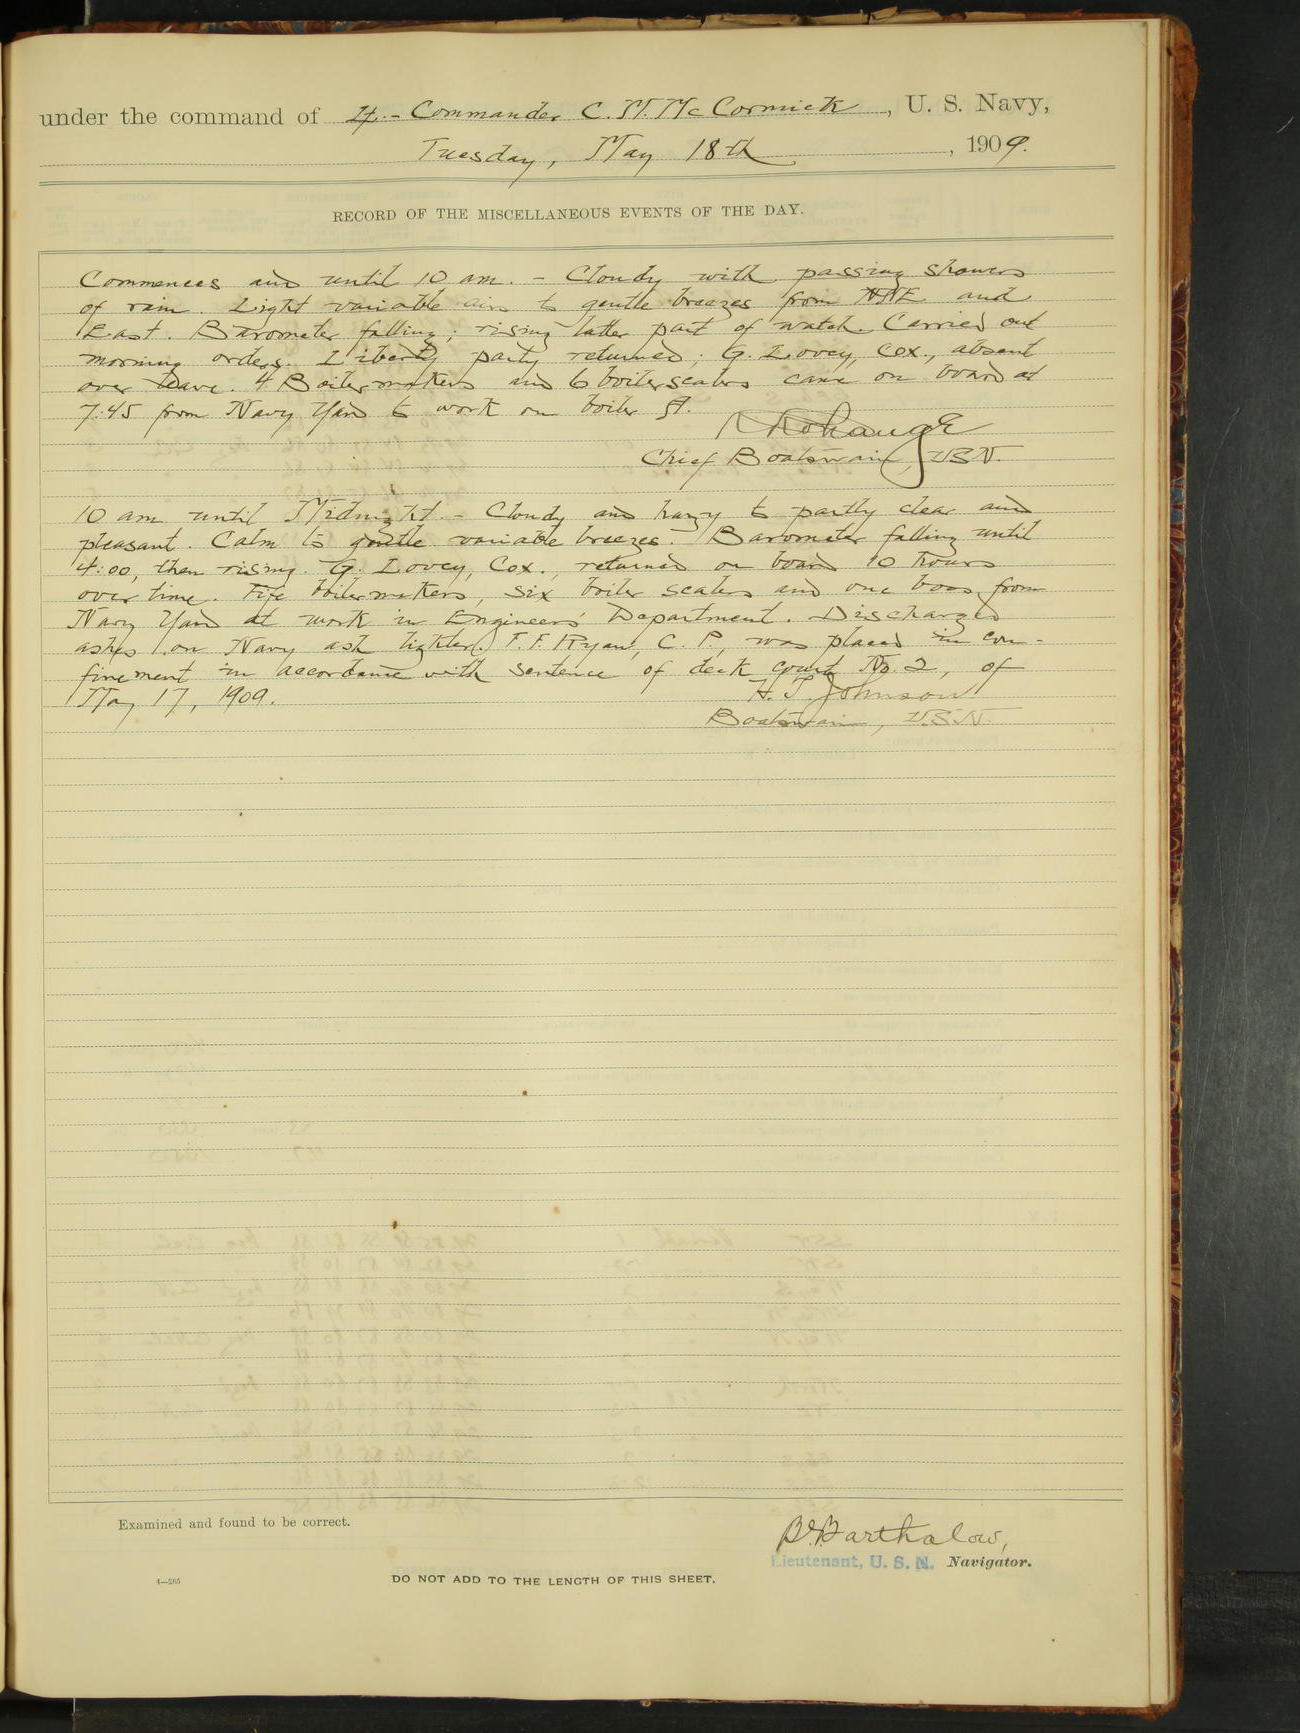 under the command of Lt.- Commander C. M. McCormick, U. S. Navy,
Tuesday, May 18th, 1909.
RECORD OF THE MISCELLANEOUS EVENTS OF THE DAY.
Commences and until 10 am. - Cloudy with passing showers
of rain. Light variable airs to gentle breezes from NNE and
East. Barometer falling; rising latter part of watch. Carried out
morning orders. Liberty party returned; G. Lovey, Cox., absent
over leave. 4 Boilermakers and 6 boilerscalers came on board at
7:45 from Navy Yard to work on boiler A.
Chief Boatswain, USN.
10 am until Midnight. - Cloudy and hazy to partly clear and
pleasant. Calm to gentle variable breezes. Barometer falling until
4:00, then rising. G. Lovey, Cox., returned on board 10 hours
over time. Five boilermakers, six boiler scalers and one boss from
Navy Yard at work in Engineers Department. Discharged
ashes on Navy ash lighter. F. F. Ryan, C. P., was placed in con-
finement in accordance with sentence of deck court No. 2, of
May 17, 1909. H. T. Johnson
Boatswain, U.S.N.
Examined and found to be correct.
Barthalow,
Lieutenant, U. S. N. Navigator.
4—265
DO NOT ADD TO THE LENGTH OF THIS SHEET.